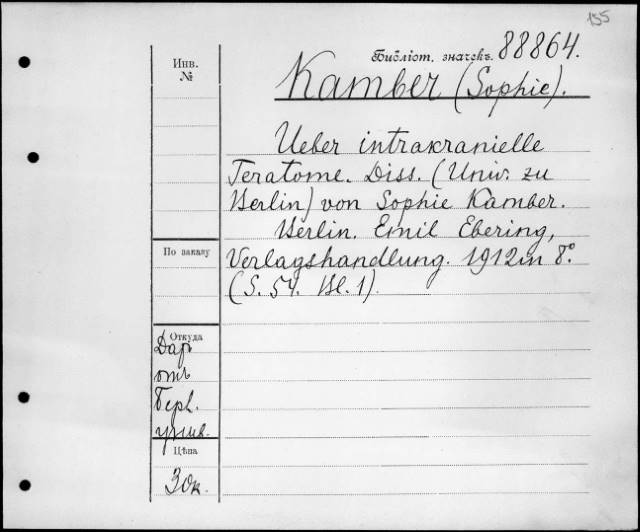 155
Библіот. значекъ. 88864.
Инв.
№
Kamber (Sophie).
Ueber intrakranielle
Teratome. Diss. (Univ. zu
Berlin) von Sophie Kamber.
Berlin. Emil Ebering,
Verlagshandlung. 1912 in 8°.
(S. 54. Bl. 1).
По заказу
Откуда
Даръ
отъ
Берл.
унив.
Цѣна